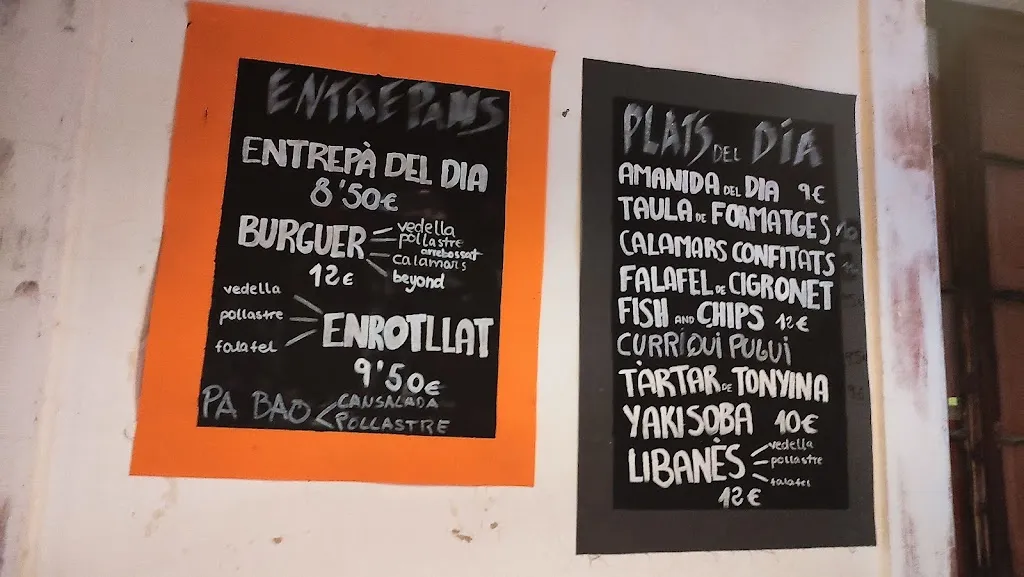 ENTREPANS
ENTREPÀ DEL DIA
8'50€
BURGUER
vedella
pollastre
arrebossat
calamars
beyond
12€
vedella
pollastre
falafel
ENROTLLAT
9'50€
PA BAO
CANSALADA
POLLASTRE
PLATS DEL DÍA
AMANIDA DEL DIA 9€
TAULA DE FORMATGES
CALAMARS CONFITATS
FALAFEL DE CIGRONET
FISH AND CHIPS 12€
CURRI QUI PUGUI
TÀRTAR DE TONYINA
YAKISOBA 10€
LIBANÈS
vedella
pollastre
falafel
12€